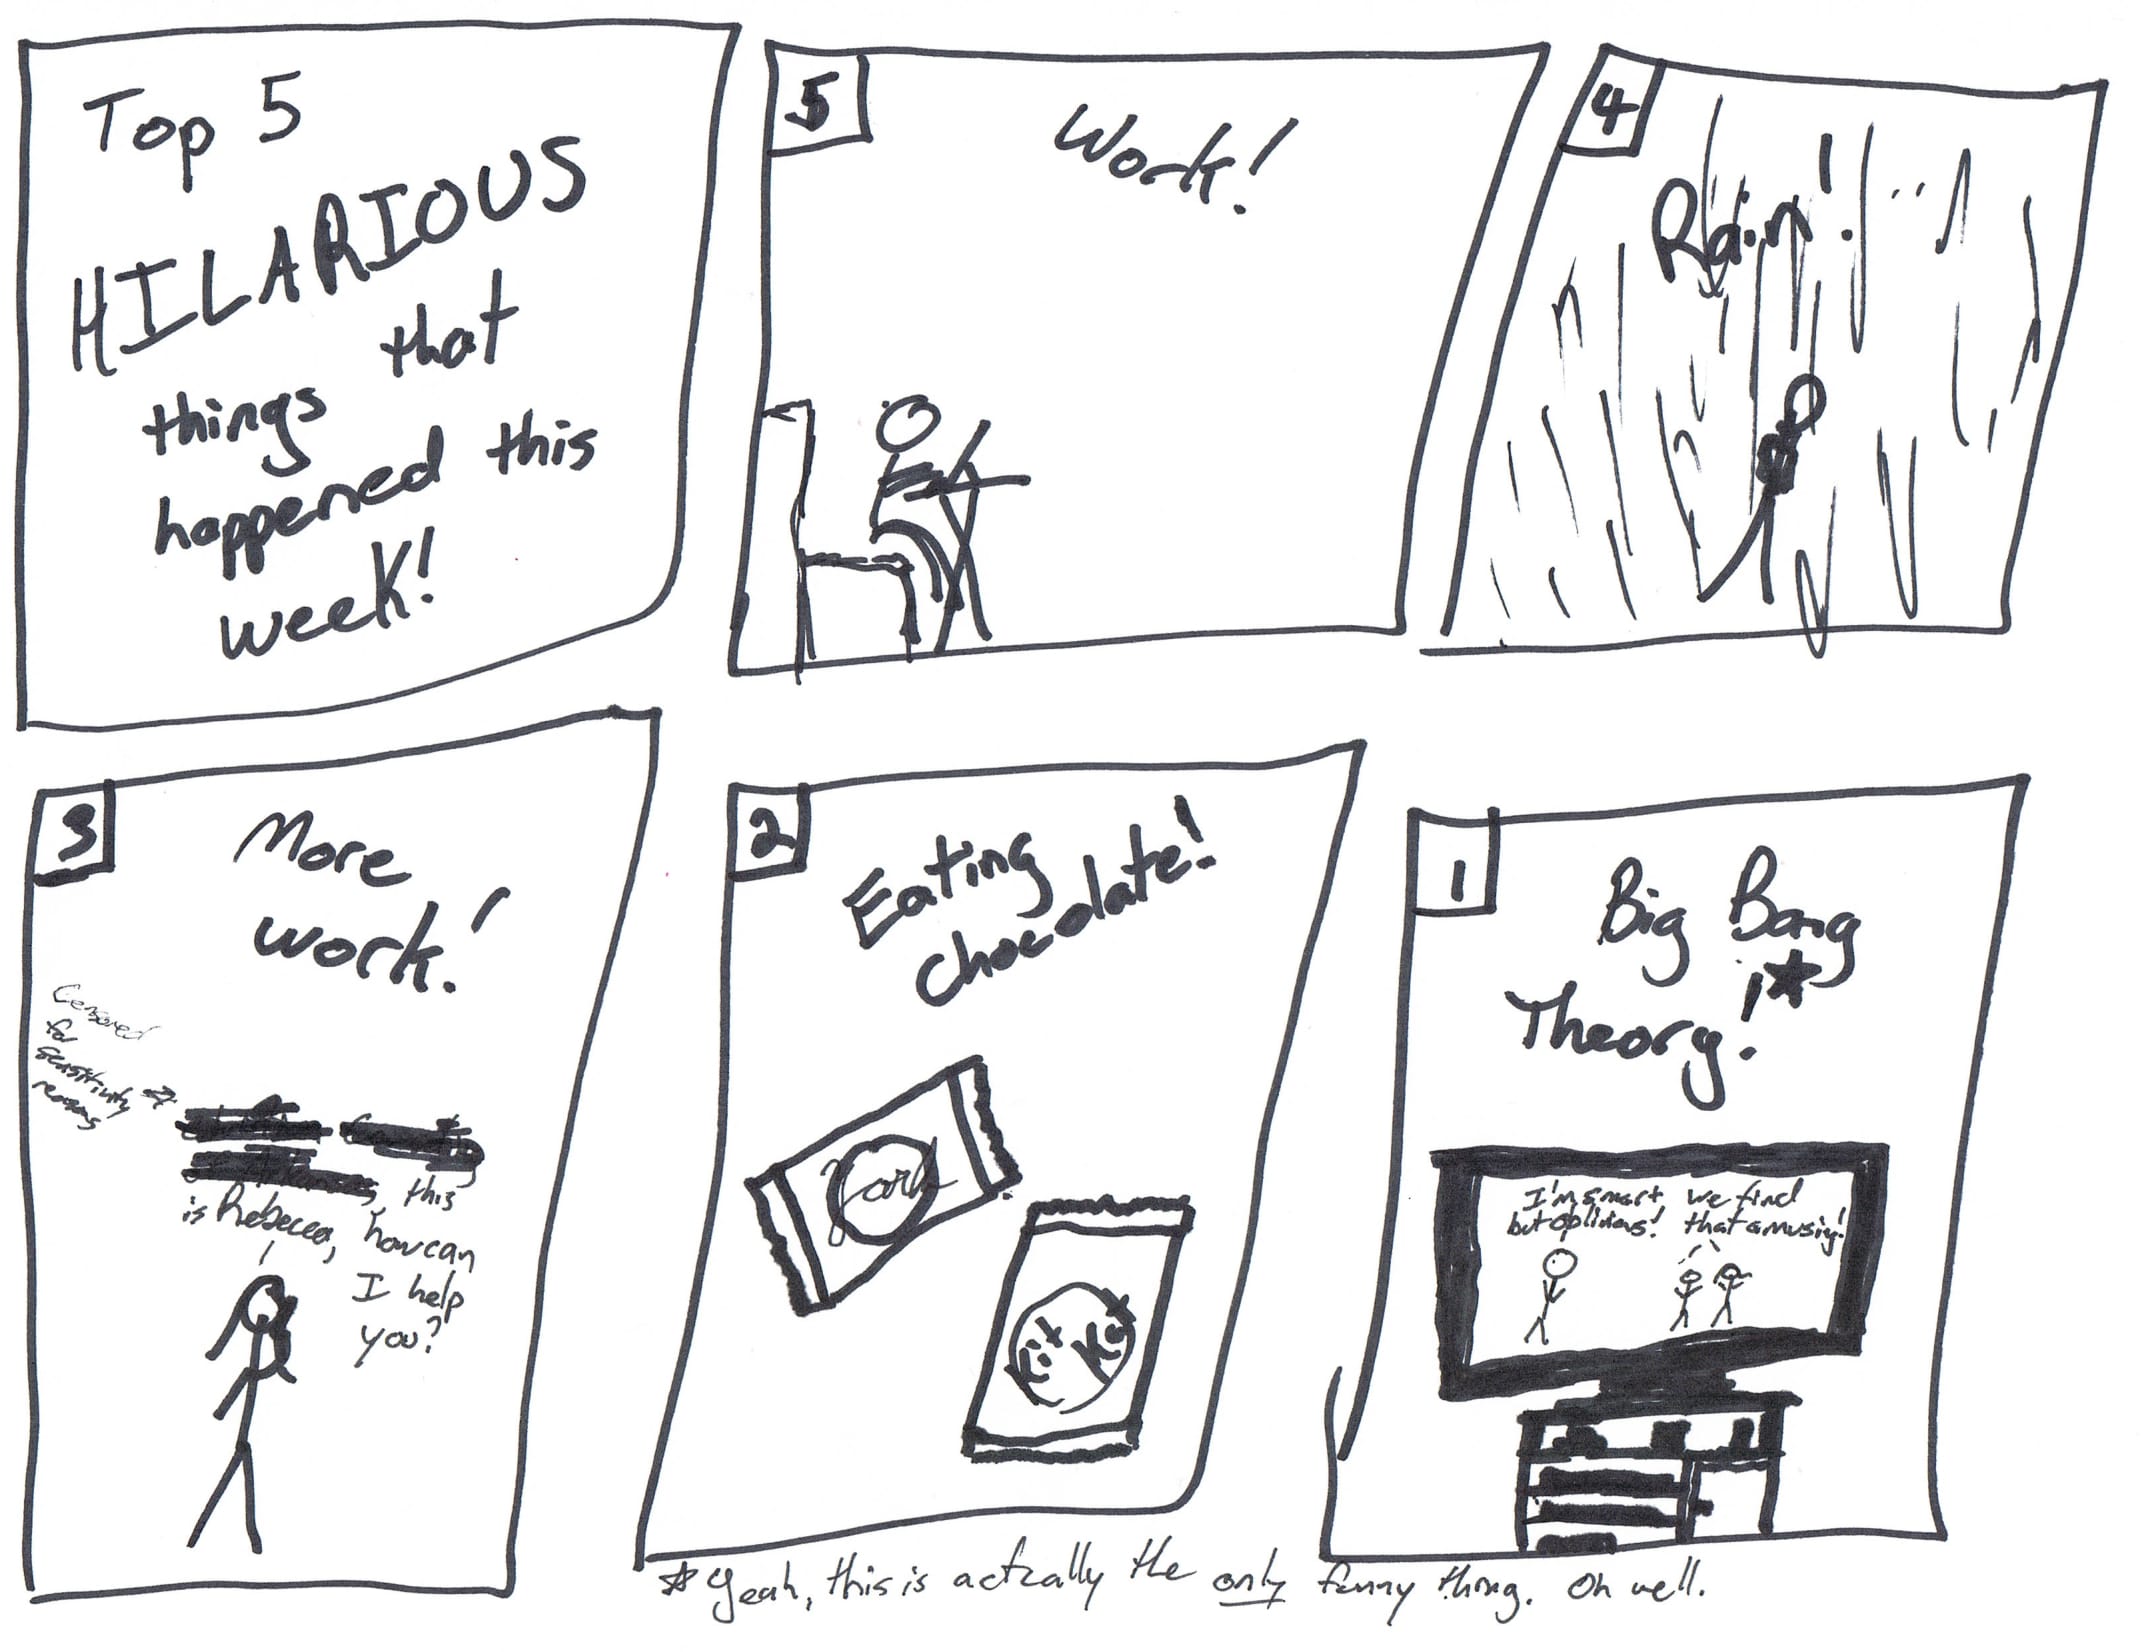 Top 5
HILARIOUS
things that
happened this
week!
5
Work!
4
Rain!
3
More
work!
Censored
for
sensitivity →
reasons
this
is Rebecca, how can
I help
you?
2
Eating
chocolate!
York
Kit Kat
1
Big Bang
Theory!*
I'm smart
but oblivious!
We find
that amusig!
*Yeah, this is actually the only funny thing. Oh well.